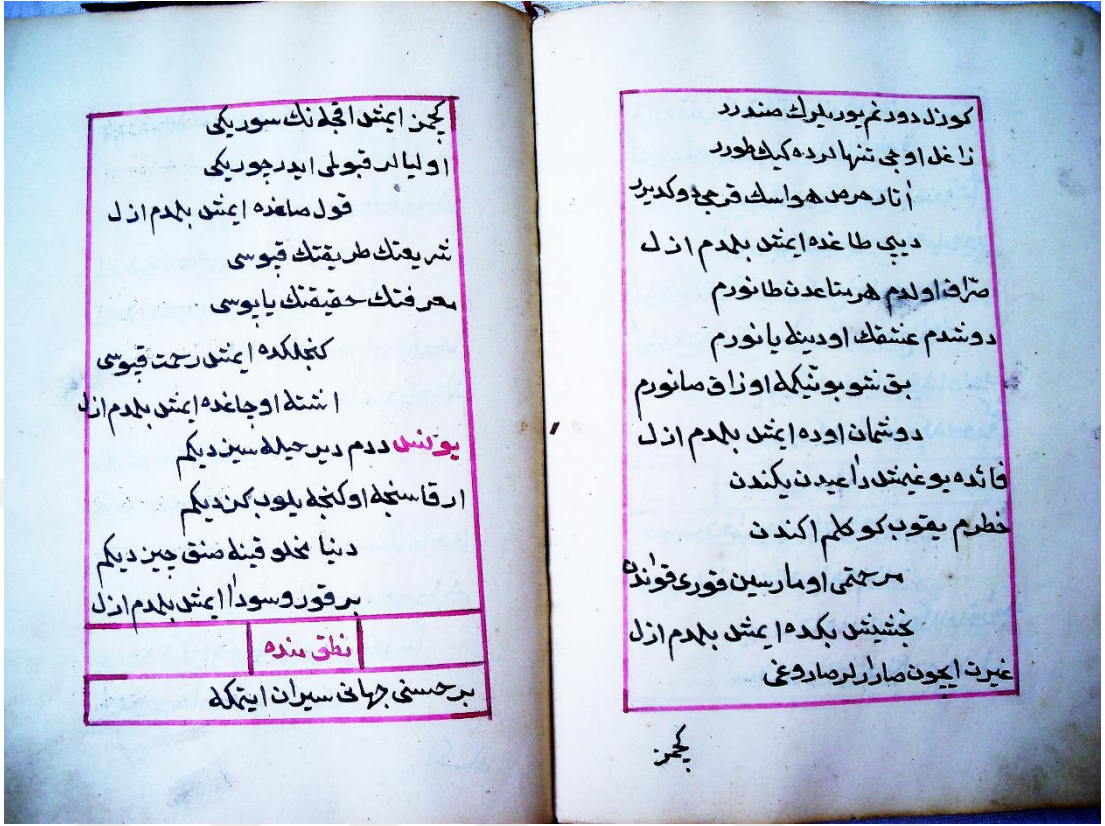 كوزل دوردغم يوريلرك صندرر
زاغل اوجى تنهالرده كيك طورر
أنار حرص هواسك قرجى دوكديرر
ديبى طاغده ايمش بلمدم ازل
صرّاف اولدم هر متاعدن طانورم
دوشدم عشقك اودينه يانورم
بق شو بوتيكه اوزاق صانورم
دوشمان اوده ايمش بلمدم ازل
فائده يوغيمش دأعيدن يكندن
خطرم يقوب كوكلم اكندن
مرحمتى اومارسين قورى قوأندن
بخشيش بكده ايمش بلمدم ازل
غيرت ايچون صارارلر صاروغى
كچمز
كچمز ايمش اقچه نك سوريكى
اوليالر قبولى ايدر چوريكى
قول صاغده ايمش بلمدم ازل
شريعتك طريقتك قپوسى
معرفتك حقيقتك ياپوسى
كنجلكده ايمش رحمت قپوسى
اشته اوجاغده ايمش بلمدم ازل
يونس ددم دير حيله سيز ديكم
ارقاسنجه اوكنجه يلوب كزديكم
دنيا مخلوقينه صنق چيزديكم
بر قورو سودأ ايمش بلمدم ازل
نطق بنده
بر حسنى جهانى سيران ايتمكه